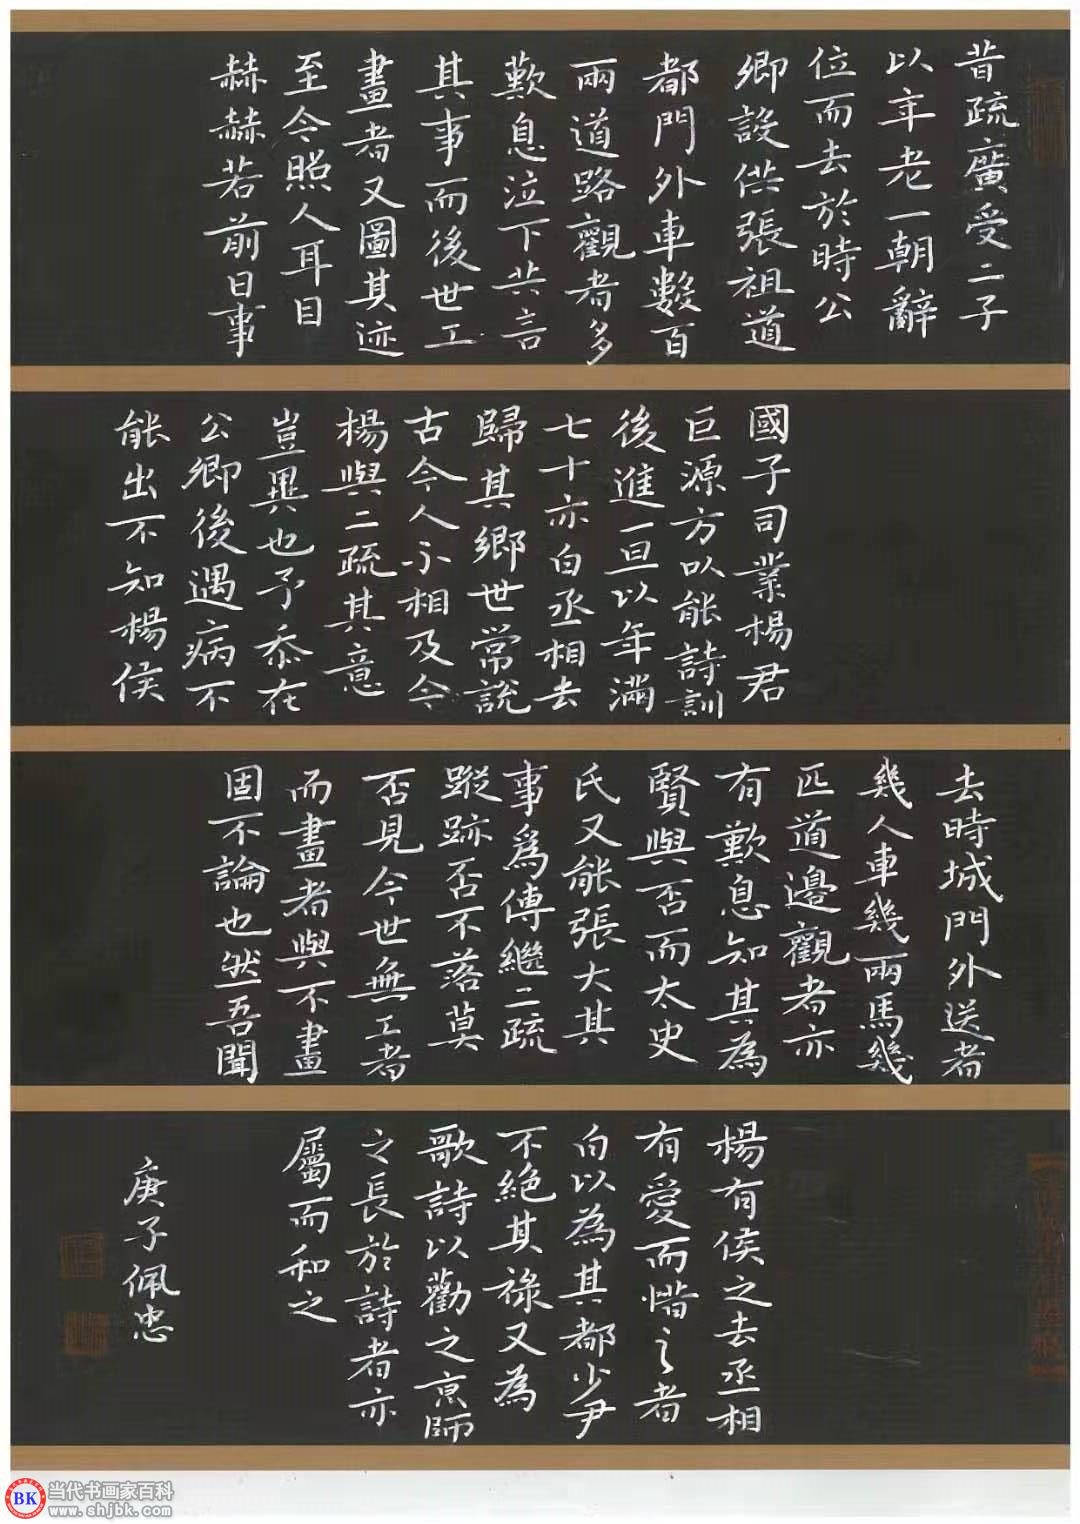 昔疏廣受二子
以年老一朝辭
位而去於時公
卿設供張祖道
都門外車數百
兩道路觀者多
歎息泣下共言
其事而後世工
畫者又圖其迹
至今照人耳目
赫赫若前日事
國子司業楊君
巨源方以能詩訓
後進一旦以年滿
七十亦白丞相去
歸其鄉世常說
古今人不相及今
楊與二疏其意
豈異也予忝在
公卿後遇病不
能出不知楊侯
去時城門外送者
幾人車幾兩馬幾
匹道邊觀者亦
有歎息知其為
賢與否而太史
氏又能張大其
事為傳繼二疏
蹤跡否不落莫
否見今世無工者
而畫者與不畫
固不論也然吾聞
楊有侯之去丞相
有愛而惜之者
白以為其都少尹
不絕其祿又為
歌詩以勸之京師
之長於詩者亦
屬而和之
庚子佩忠
BK 当代书画家百科
www.shjbk.com